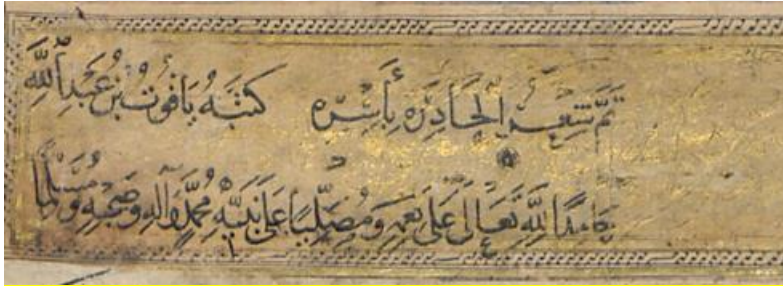 تَمَّ شِعْرُ الْحَادِرَهْ بِأَسْرِهِ كَتَبَهُ يَاقُوتُ بْنُ عَبْدِ اللّٰهِ
حَامِدًا لِلّٰهِ تَعَالَى عَلَى نِعَمِهِ وَمُصَلِّيًا عَلَى نَبِيِّهِ مُحَمَّدٍ وَآلِهِ وَصَحْبِهِ وَمُسَلِّمًا